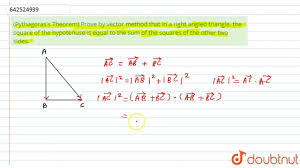 642524999
(Pythagoras's Theorem) Prove by vector method that in a right angled triangle, the
square of the hypotenuse is equal to the sum of the squares of the other two
sides.
A
B
C
AC = AB + BC
|AC|² = |AB|² + |BC|² |AC|² = AC · AC
|AC|² = (AB + BC) · (AB + BC)
=
doubtnut